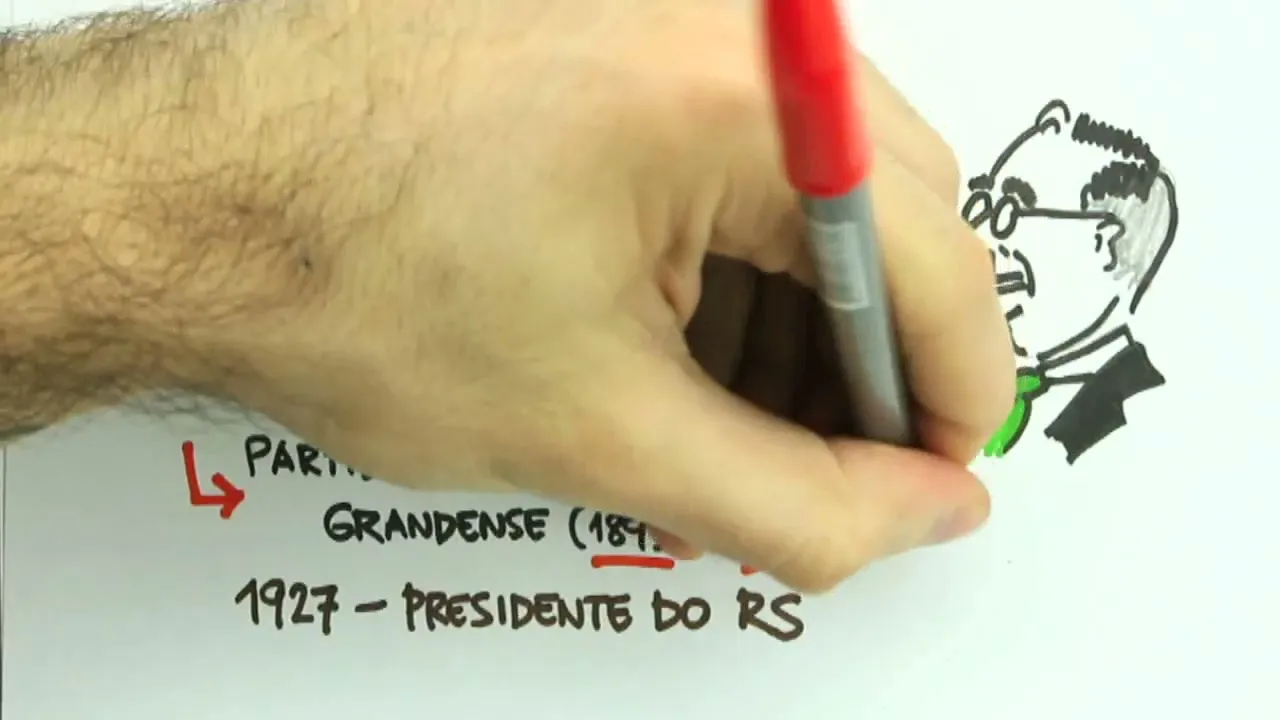 GRANDENSE (189
1927 – PRESIDENTE DO RS